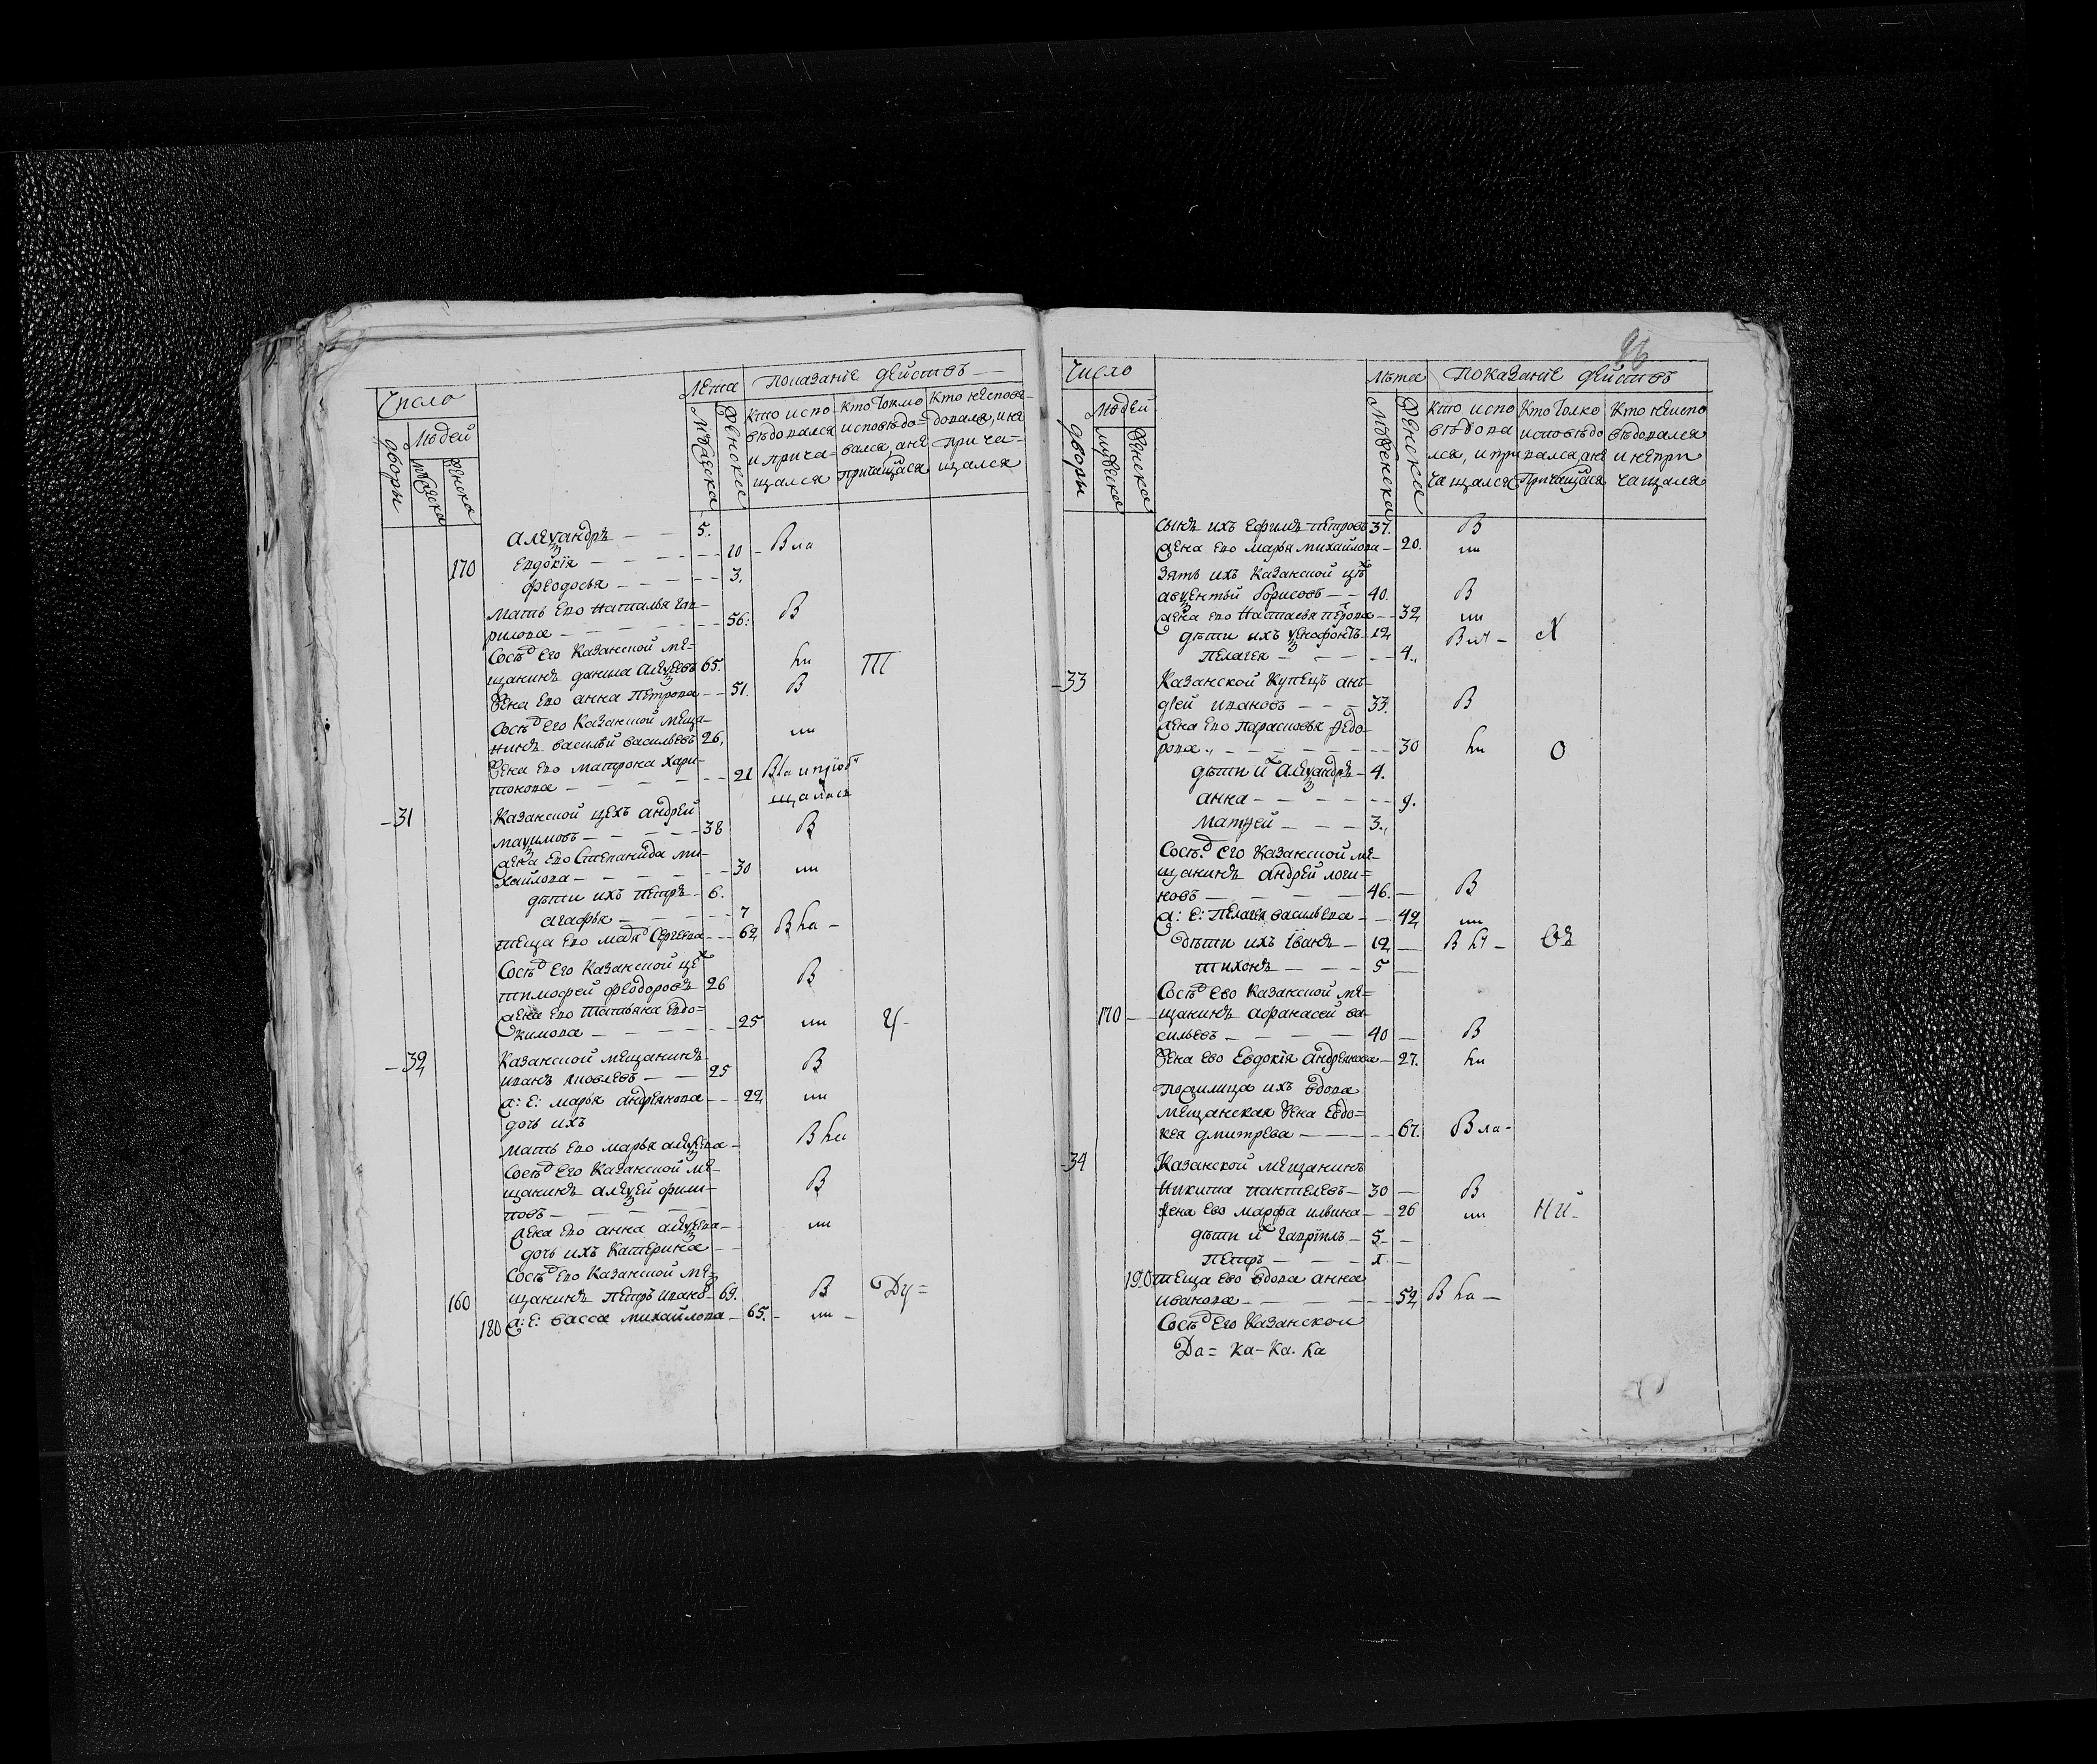 Число
Лѣта Показанїе дѣйствъ
Людей
дворы
мужеска
женска
Мужеска
Женска
Кто испо-
вѣдовался
и прича-
щался
Кто токмо
исповѣдо-
вался, а не
причащался
Кто неиспове-
довался, и не
прича-
щался
Алеѯандръ — — 5.
Евдокїя — — — 10 - Вла
170 Феодосья — — — 3.
Мать ево Наталья Гав-
рилова — — — 56. В
Сосѣд его Казанской ме-
щанинъ данила Алеѯеевъ 65. hи Ш
Жена ево анна Петрова — 51. В
Сосѣд его Казанской меща-
нинъ василей васильевъ 26, ии
Жена ево матрона Хари-
тонова — — — 21
щалися
31 Казанской цехъ андрей
маѯимовъ — — — 38 В
жена ево Степанида ми-
хайлова — — — 30 ии
дѣти ихъ Петръ — 6.
агафья — — — 7
теща ево Сергеева — 62 В hа —
Сосѣд Его Казанской цех
тимофей феодоровъ 26 В
жена ево татьяна Евдо-
кимова — — — 25 ии
32 Казанской мещанинъ
иванъ яковлевъ — — 25 В
ж: Е: марья андреянова — 22 ии
дочь ихъ
мать ево марья алеѯеева — В hи
Сосѣд его Казанской ме-
щанинъ алеѯей филип-
повъ — — — В
жена ево анна алеѯеева — ии
дочь ихъ Катерина —
Сосѣд ево Казанской ме-
160 щанинъ петръ иванов 69. В Ду =
180 ж: Е: васса михайлова — 65. — ии —
96
Число
Лѣта Показанїе дѣйствъ
Людей
дворы
мужеска
женска
Мужеска
Женска
Кто испо
вѣдова
лся, и при
чащался
Кто толко
исповѣдо
вался, а не
причащался
Кто неиспо
вѣдовался
и непри
чащался
сынъ ихъ Ефимъ петровъ 37. В
жена ево марья михайлова — 20. ии
Зять ихъ Казанской цѣх
авѯентъй борисовъ — — 40. В
жена ево Настасья петрова — 32 ии
дѣти ихъ ѯенофонтъ — 12 Х
пелагея — — — 4.
33 Казанской Купецъ ан-
дрей ивановъ — — — 33. В
жена ево парасковья Федо-
рова — — — 30 hи О
дѣти их Алеѯандръ — 4.
анна — — — 9.
матѳей — — — 3.
Сосѣд его Казанской ме-
щанинъ андрей логи-
новъ — — — 46. — В
ж: Е: пелагея васильева — 42 ии
дѣти ихъ Іванъ — 12 — В hi —
тихонъ — — — 5 —
Сосѣд ево Казанской ме-
170 — щанинъ афанасей ва-
сильевъ — — — 40 — В
жена ево Евдокїя андреянова — 27. hи
пожилица ихъ вдова
мещанская жена Евдо-
кея дмитрева — — — 67. Вла —
34 Казанской мещанинъ
Никита пантелеевъ — 30 — В
жена ево марфа ильина — 26 ии Ни —
дѣти их гаврїилъ — 5 —
Петръ — — — 1 —
190 теща ево вдова анна
иванова — — — 52 В hа —
Сосѣд Его Казанской
Da = ка - Ка. Ка